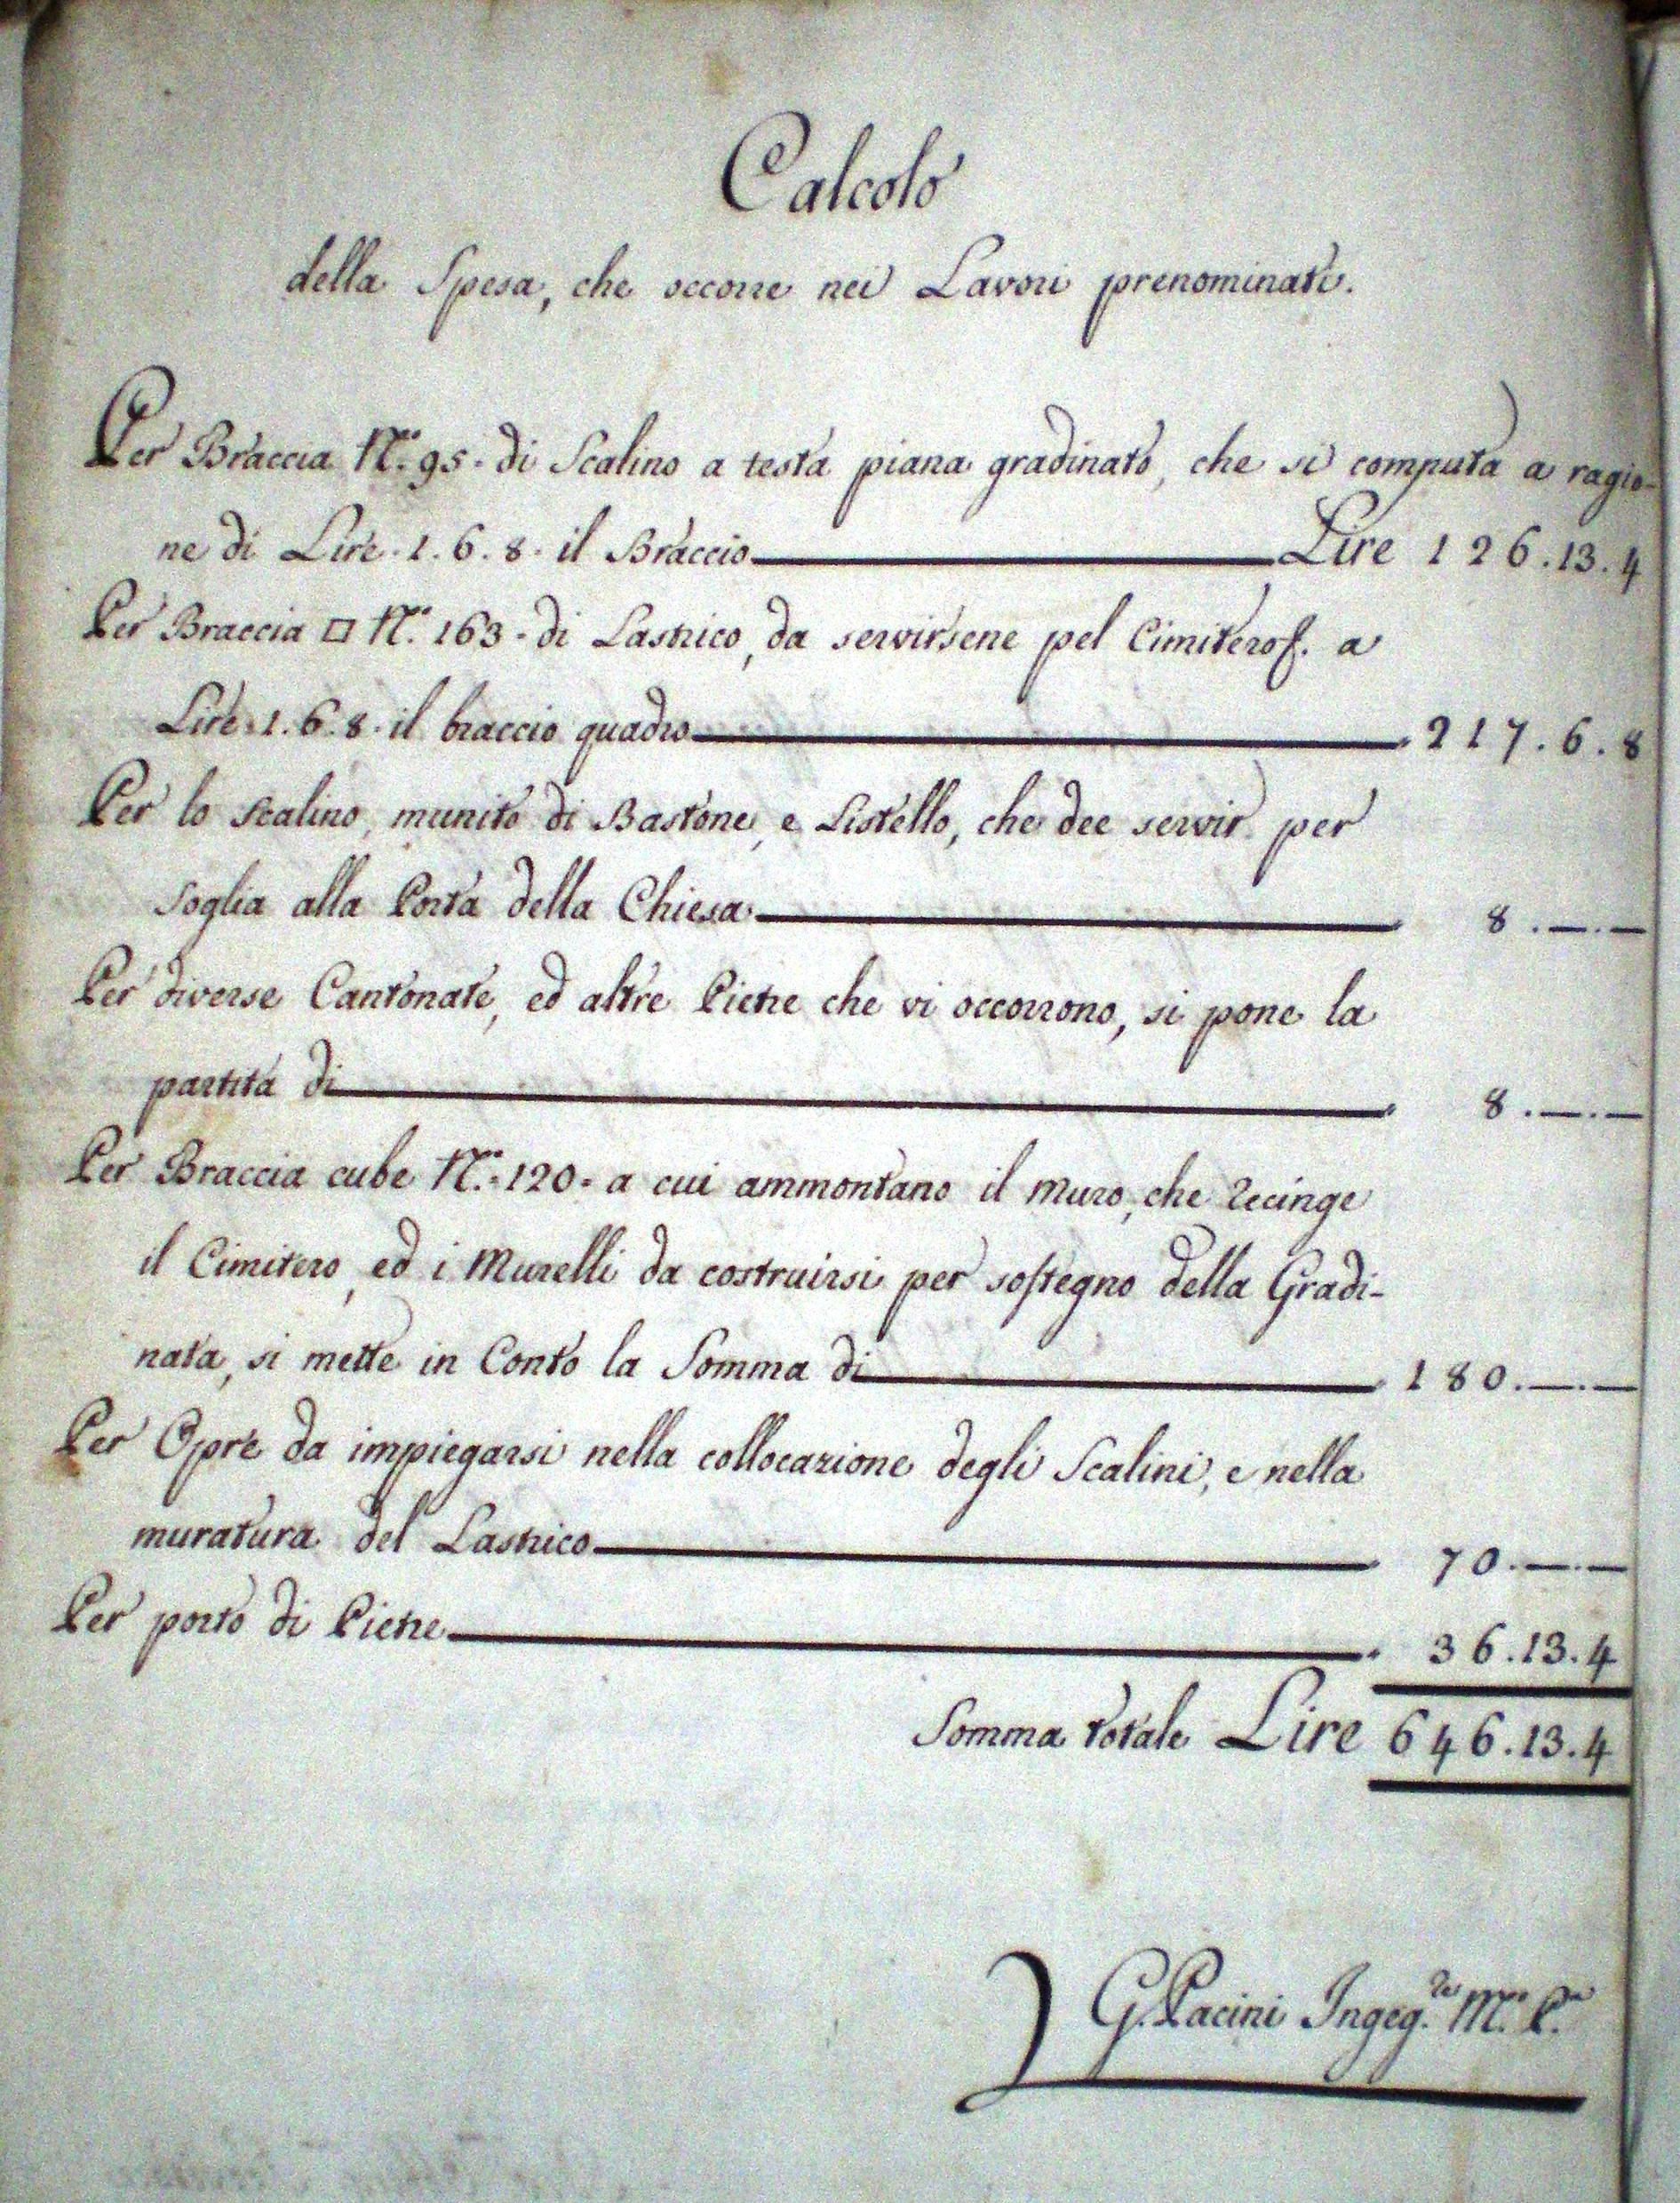 Calcolo
della Spesa, che occorre nei Lavori prenominati.
Per Braccia N.º 95. di Scalino a testa piana gradinato, che si computa a ragio-
ne di Lire. 1. 6. 8. il Braccio Lire 126.13.4
Per Braccia □ N.º 163. di Lastrico, da servirsene pel Cimitero f. a
Lire. 1. 6. 8. il braccio quadro 217.6.8
Per lo scalino, munito di Bastone, e Listello, che dee servir per
soglia alla Porta della Chiesa 8.—.—
Per diverse Cantonate, ed altre Pietre che vi occorrono, si pone la
partita di 8.—.—
Per Braccia cube N.º 120. a cui ammontano il muro, che recinge
il Cimitero, ed i Murelli da costruirsi per sostegno della Gradi-
nata, si mette in Conto la Somma di 180.—.—
Per Opre da impiegarsi nella collocazione degli Scalini, e nella
muratura del Lastrico 70.—.—
Per porto di Pietre 36.13.4
Somma totale Lire 646.13.4
G. Pacini Ingeg.re